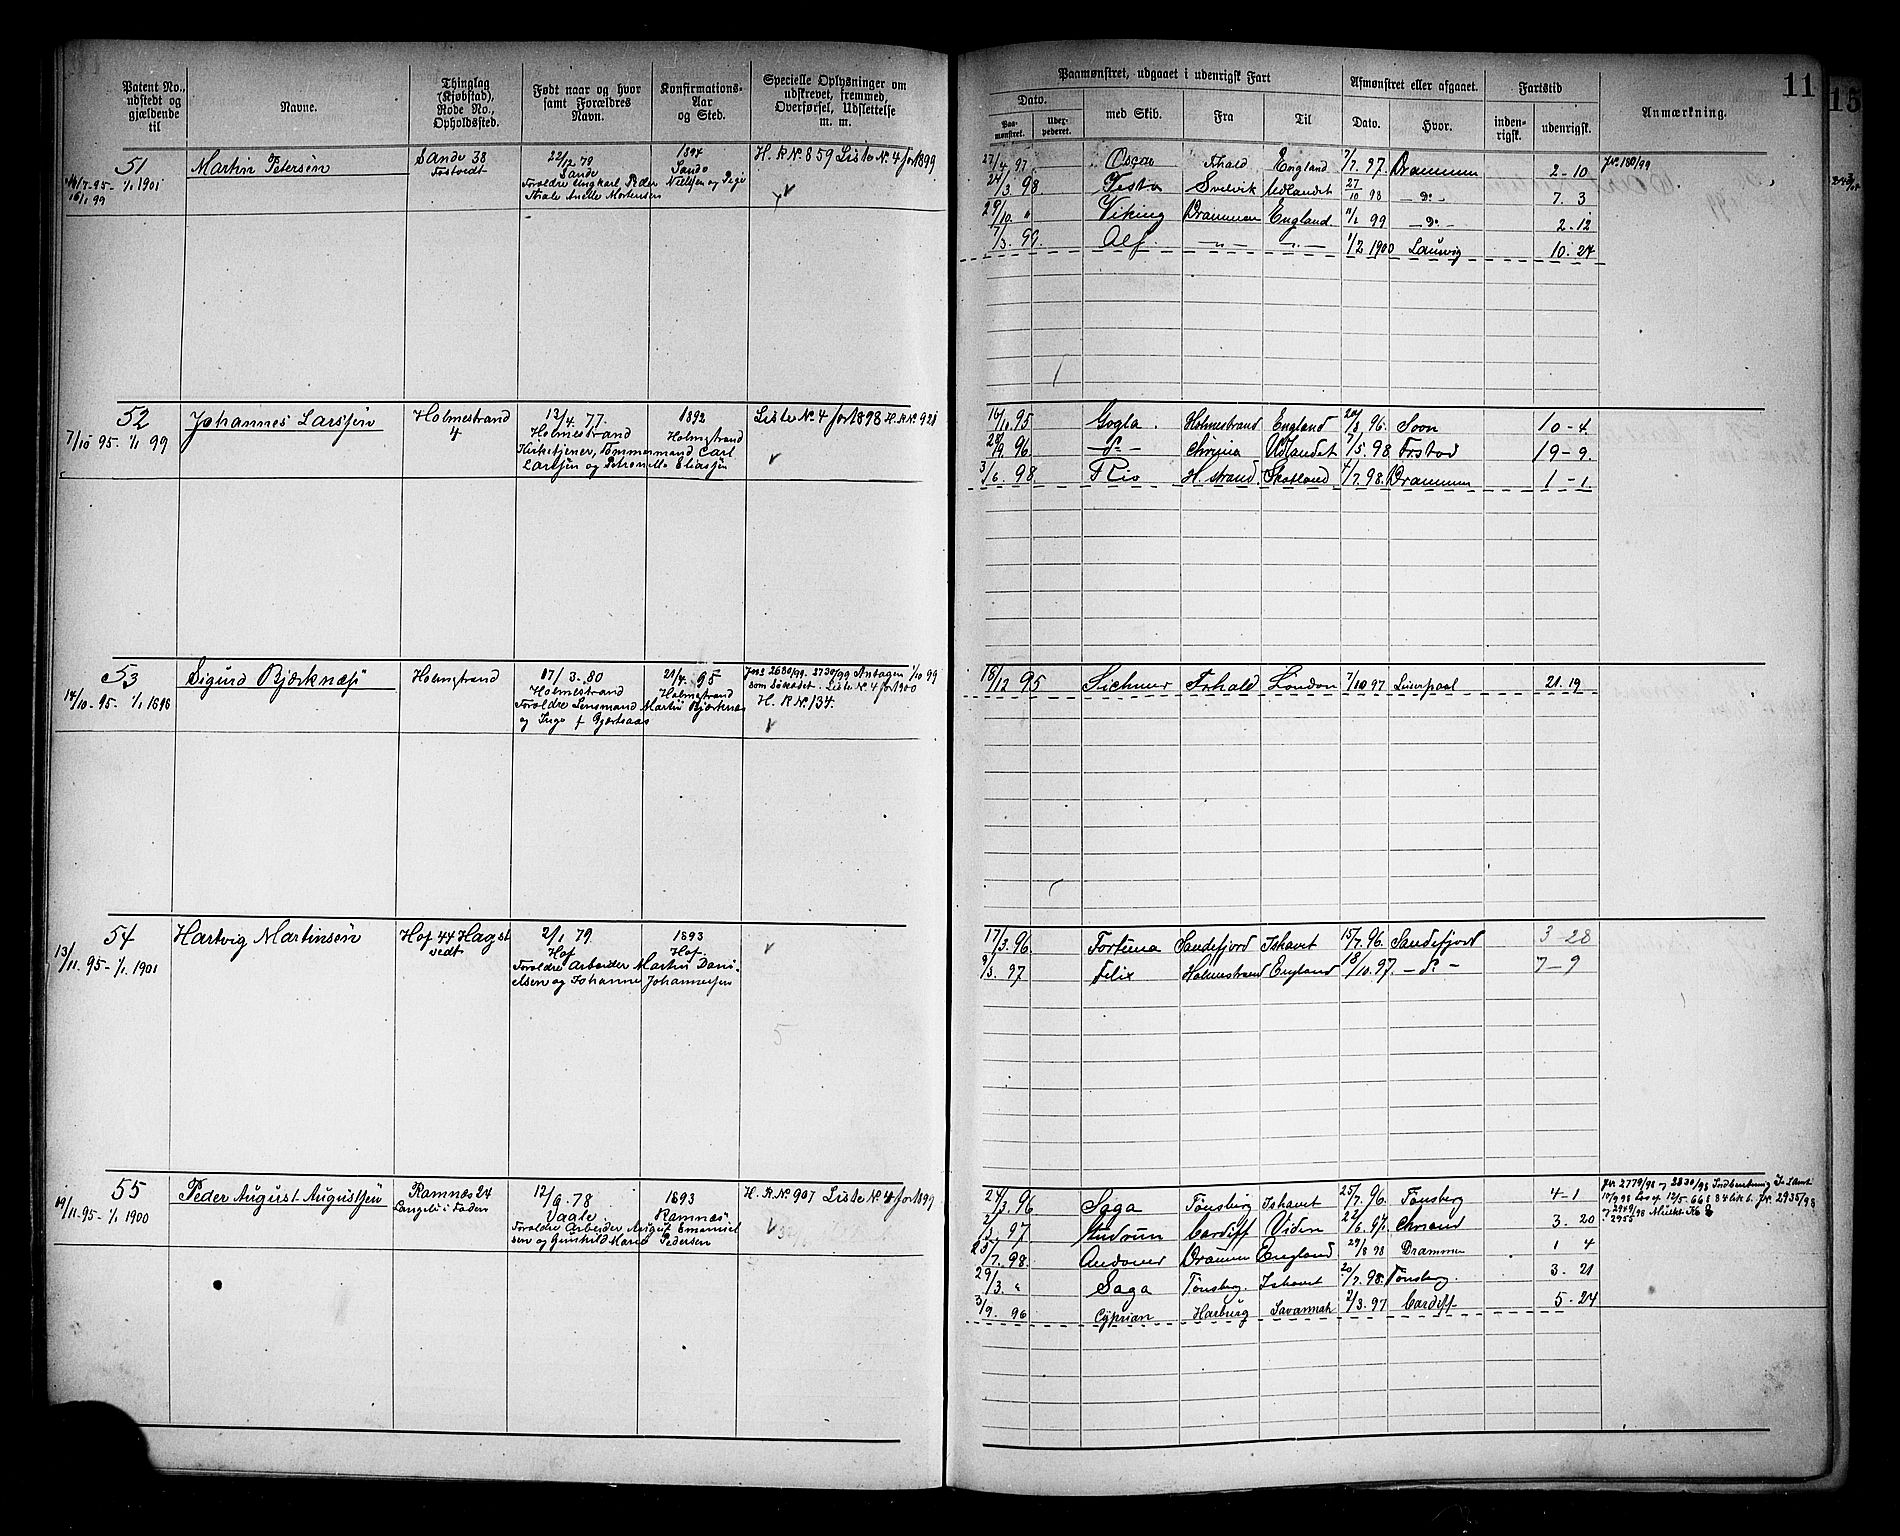 Patent No., udstedt og gjældende til
Navne.
Thinglag (Kjøbstad), Rode No., Opholdssted.
Født naar og hvor samt Forældres Navn.
Konfirmations-Aar og Sted.
Specielle Oplysninger om udskrevet, fremmed, Overførsel, Udslettelse m. m.
Paamønstret, udgaaet i udenrigsk Fart
Dato.
Paa-mønstret.
med Skib.
Fra
Til
Afmønstret eller afgaaet.
Dato.
Hvor.
Fartstid
inden-rigsk.
udenrigsk.
Anmærkning.
11
15
51
14/7-95-1/1 1901
16/1 99
Martin Petersen
Sande 38
22/2 79
Sande
Anette Mortensen
1894
Sande
H. R. No. 859 Liste No. 4 for 1899
27/4 97 Oscar England 7/7 97 Drammen 2-10
24/3 98 Svelvik Udlandet 27/10 98 - do - 7. 3
29/10 " Viking Drammen England 99 - do - 2-12
7/3. 99. Alf. - " - - " - 1/2 1900 Laurvig 10. 24
Jr. 180/99
52
7/10 95. 1/1 99
Johannes Larssen
Holmestrand
4
13/4. 77.
Holmestrand
Kirketjener, Tømmermand Carl
Larssen og Petronille Eliassen
1892
Holmestrand
Liste No. 4 for 1898 H. R. No. 921
16/10 95 Gogla. Holmestrand England 20/8 96. Soon 10-4.
28/9. 96 - do - Udlandet 7/5. 98. 19-9.
3/6 98. Rio H. strand. Skotland 4/7. 98. Drammen 1-1.
53
14/10-95- 1/1 1898
Sigurd Bjerknæs
Holmestrand
17/3. 80
Holmestrand
Forældre Lensmand Martin Bjerknæs
og
95
Holmestrand
2680/99. 2730/99 Antagen 1/10 99
som Liste No. 4 for 1900
H. R. No. 134.
18/12 95 London 7/10 97 Liverpool 21. 19
54
13/11. 95-1/1. 1901
Hartvig Martinsen
Hof 44 Hagst
vedt
2/1 79.
Hof
Forældre Arbeider Martin Dani-
elsen og Johanne Johannessen
1893
Hof.
5
17/3. 96. Fortuna Sandefjord Ishavet 15/7. 96. Sandefjord 3-28
9/3. 97 Felix Holmestrand England 18/10. 97. - do - 7-9
55
19/11. 95- 1/1 1900
Peder August Augustsen
Ramnæs 24
12/9. 78
Vaale
Forældre Arbeider August Emanuel
sen og Gunhild Marie Pedersen
1893
Ramnæs
H. R. No. 907 Liste No. 4 for 1899
24/3. 96 Saga Tønsberg Ishavet 25/7. 96. Tønsberg 4-1
2/3. 97 Gudrun Cardiff 22/6. 97. 3. 20
25/7. 98. Andover Drammen England 29/8 98 Drammen 1 4
29/3. " Saga Tønsberg. Ishavet 20/7. 98. Tønsberg. 3. 21
3/9. 96 Cyprian Harburg Savannah 2/3. 97 Cardiff 5-24
Jr. 2779/98 2830/98
Jr. 2935/98
2949/98
2955